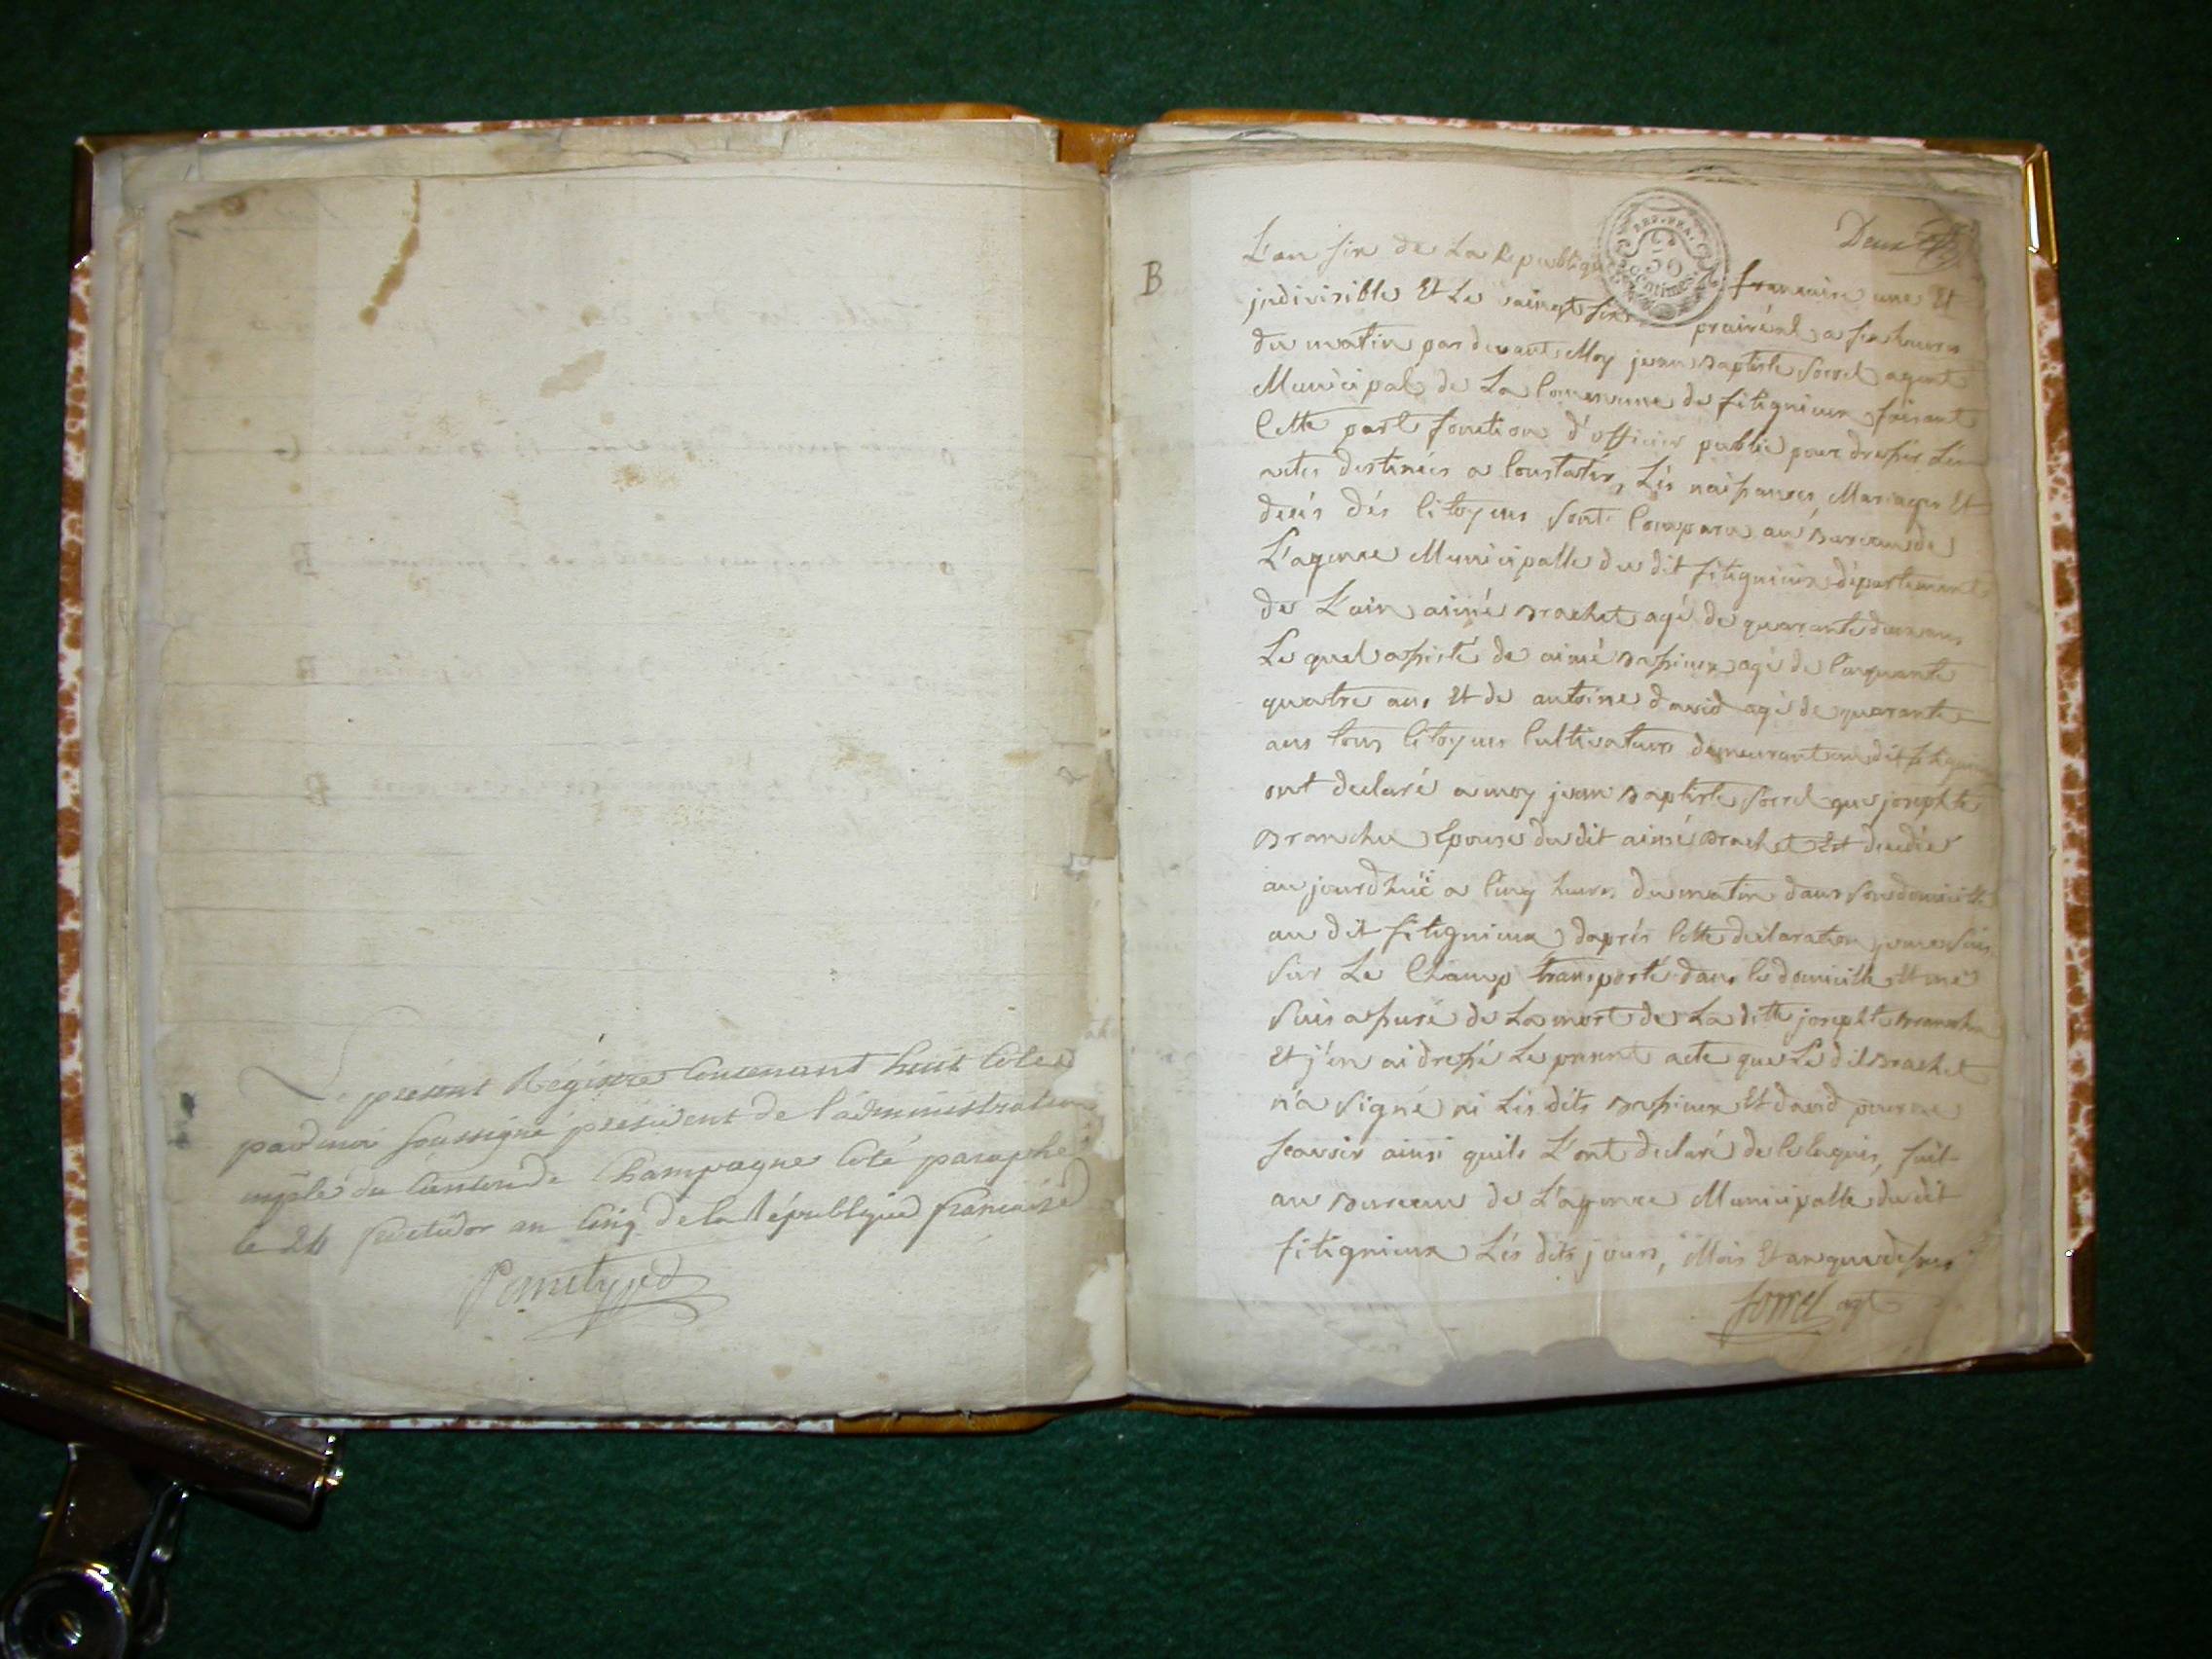 Le présent Régistre Contenant huit Cotes
par moi soussigné président de l'administration
mple du Canton de Champagne Coté paraphé
le 24 fructidor an Cinq de la République française
B
Deux
REP. FRA.
50
Centimes
L'an six de La Republique francaise une Et
jndivisible Et Le vaingt six prairéal a six heures
du matin par devant Moy jean Baptiste Sorrel agent
Municipal de La Commune de fitignieux faisant
Cette part fonction d'officier public pour dresser Les
actes destinées a Constater, Lés naissances Mariages Et
decés dés Citoyens sont Comparu au Bureau de
L'agence Municipalle du dit fitignieux département
de L'ain aimé Brachet agé de quarante deux ans
Le quel assisté de aimé Bassieux agé de Cinquante
quatre ans Et de antoine david agé de quarante
ans tous Citoyens Cultivateurs demeurant au dit fitignieux
ont declaré a moy jean Baptiste Sorrel que josephte
Branchu Epouse du dit aimé Brachet Est decedée
aujourdhuï a Cinq heures du matin dans son domicille
au dit fitignieux daprés Cette declaration je me suis
sur Le Champ transporté dans Le domicille Et me
suis assuré de La mort de La ditte josephte Branchu
Et j'en ai dressé Le present acte que Le dit Brachet
n'a signé ni Les dits Bassieux Et david pour ne
scavoir ainsi quils L'ont declaré de Ce Enquis, fait
au Bureau de L'agence Municipalle du dit
fitignieux Lés dits jours, Mois Et an que dessus
Sorrel agt